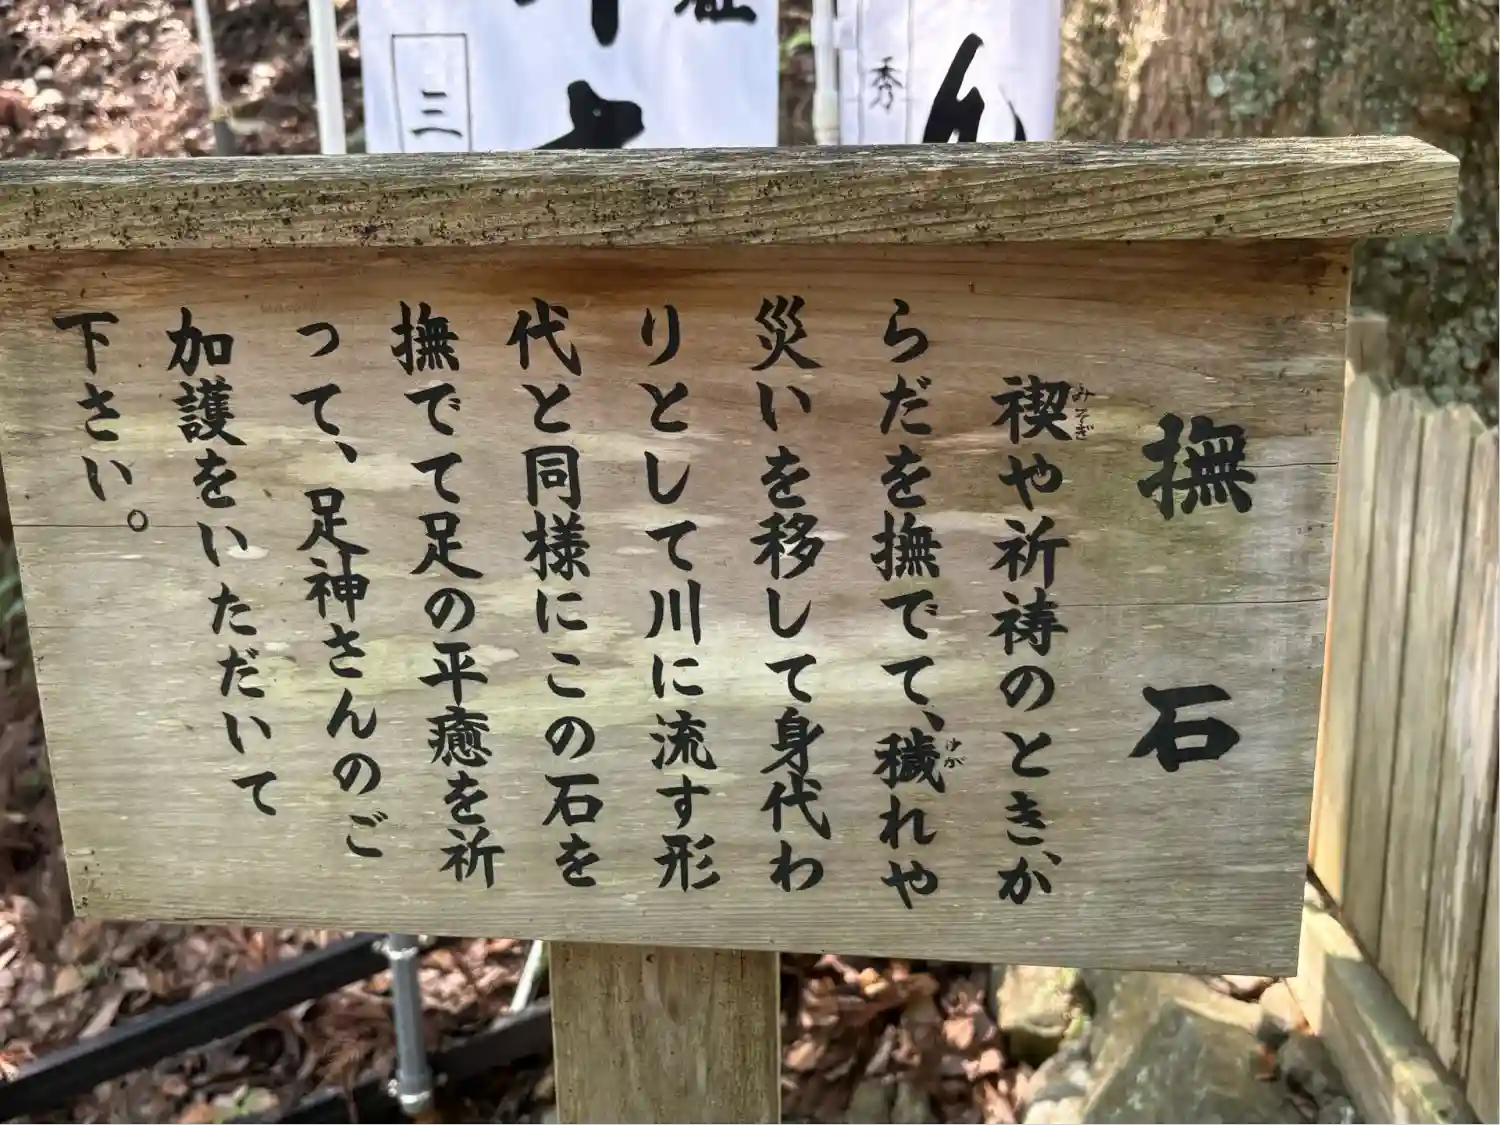 撫石
禊や祈祷のとき、か
みそぎ
らだを撫でて、穢れや
けが
災いを移して身代わ
りとして川に流す形
代と同様にこの石を
撫でて足の平癒を祈
って、足神さんのご
加護をいただいて
下さい。
三
秀